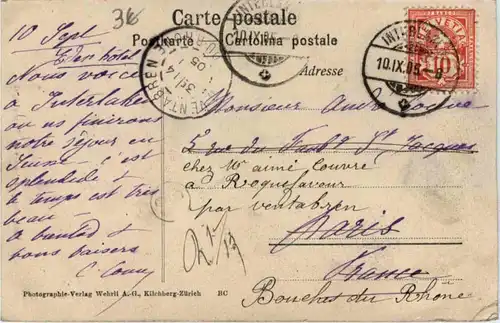 36
Carte postale
Postkarte. Cartolina postale
Adresse
10 Sept
Cher hôtel
Nous voici
à Interlaken
où ns finirons
notre séjour en
Suisse c'est
splendide et
le temps est très
beau
à bientôt
bons baisers
INTERLAKEN
10.IX.05
INTERLAKEN
10.IX.05.-9
HELVETIA
10
VENTABREN
05
Monsieur André Couvre
5 rue du Faubg St Jacques
chez Mr aimé Couvre
à Roquefavour
par ventabren
Paris
France
Bouches du Rhône
Photographie-Verlag Wehrli A.-G., Kilchberg-Zürich BC